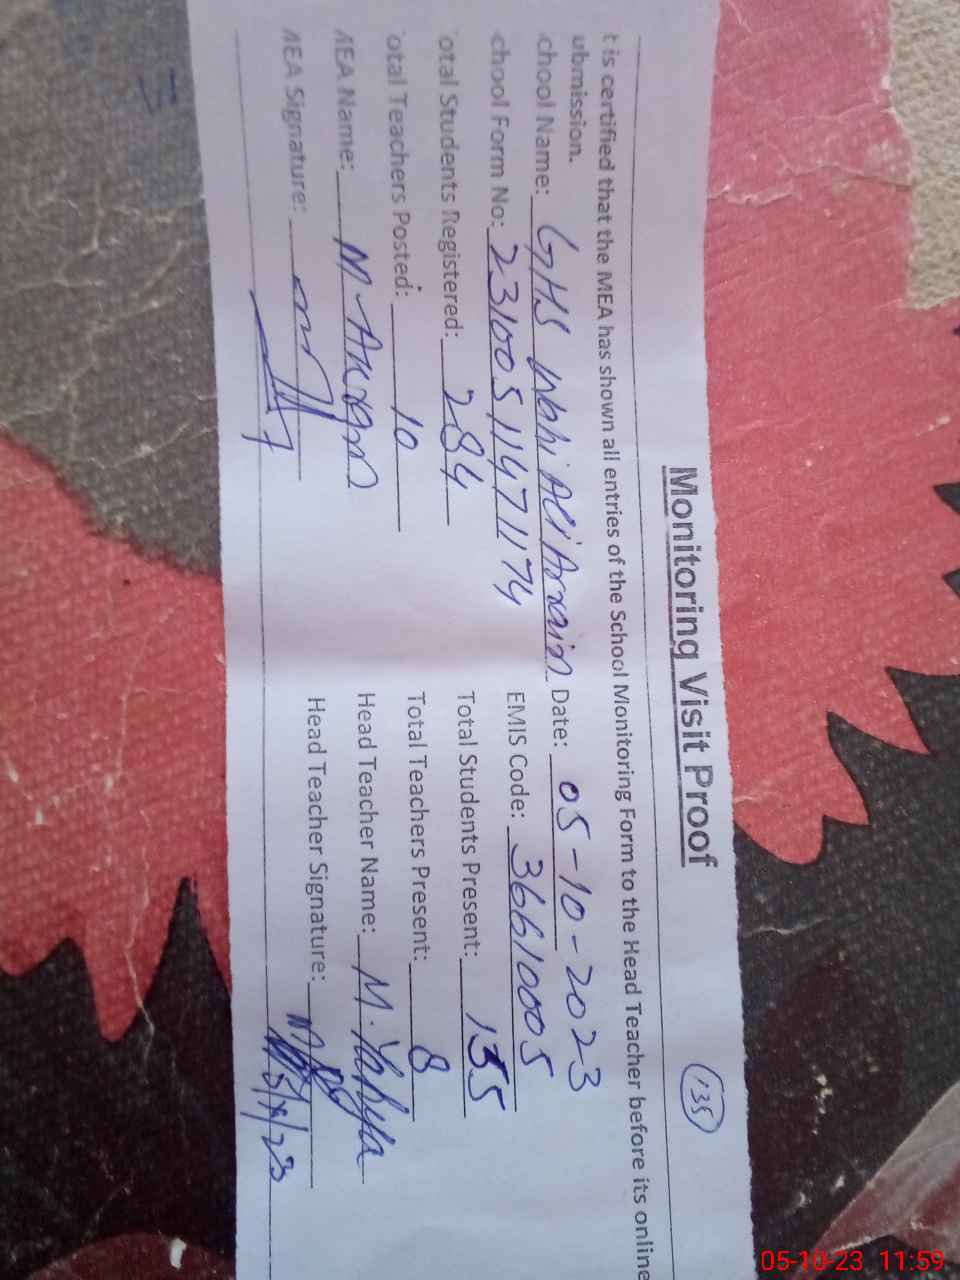 135
Monitoring Visit Proof
t is certified that the MEA has shown all entries of the School Monitoring Form to the Head Teacher before its online
ubmission.
chool Name: GHS Nabi Ali Arain Date: 05-10-2023
chool Form No: 23100511471174 EMIS Code: 36610005
otal Students Registered: 284 Total Students Present: 135
otal Teachers Posted: 10 Total Teachers Present: 8
MEA Name: M. Akram Head Teacher Name: M. Yahya
MEA Signature: Head Teacher Signature:
05-10-23 11:59